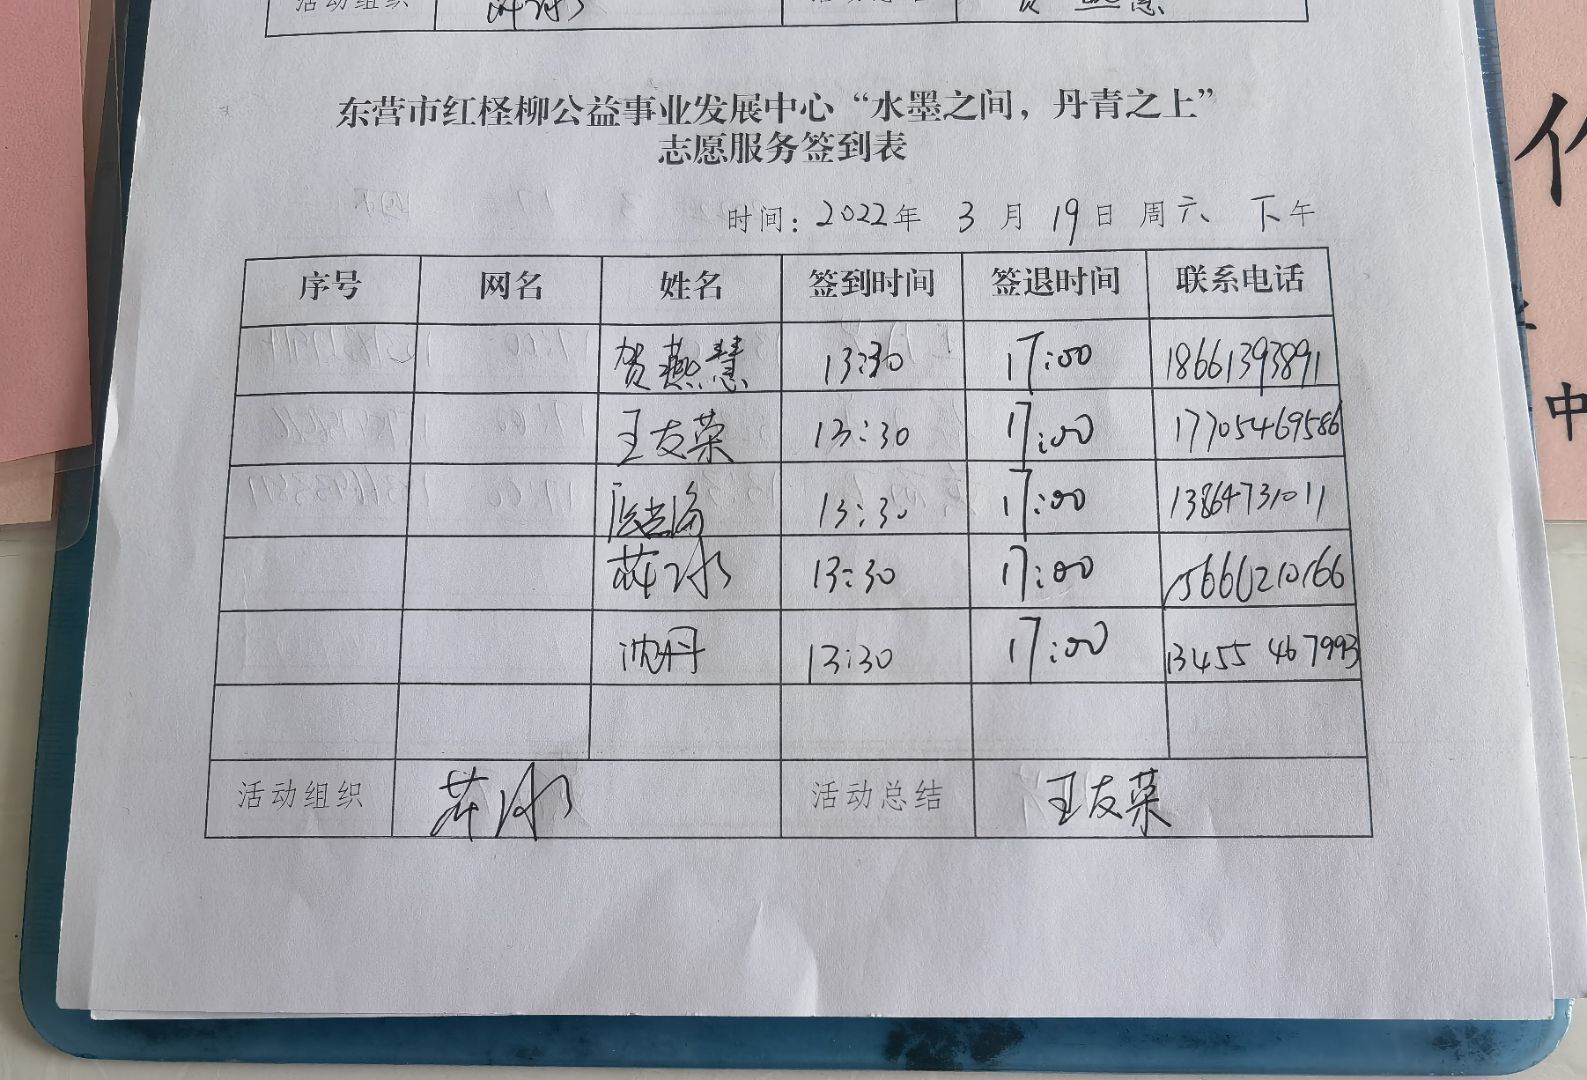 活动组织
东营市红柽柳公益事业发展中心“水墨之间，丹青之上”
志愿服务签到表
时间：2022年 3月19日 周六、下午
序号 网名 姓名 签到时间 签退时间 联系电话
贺燕慧 13:30 17:00 18661393891
王友荣 13:30 17:00 17705469586
13:30 17:00 13864731011
13:30 17:00 15666210166
沈丹 13:30 17:00 13455467993
活动组织 活动总结 王友荣
中